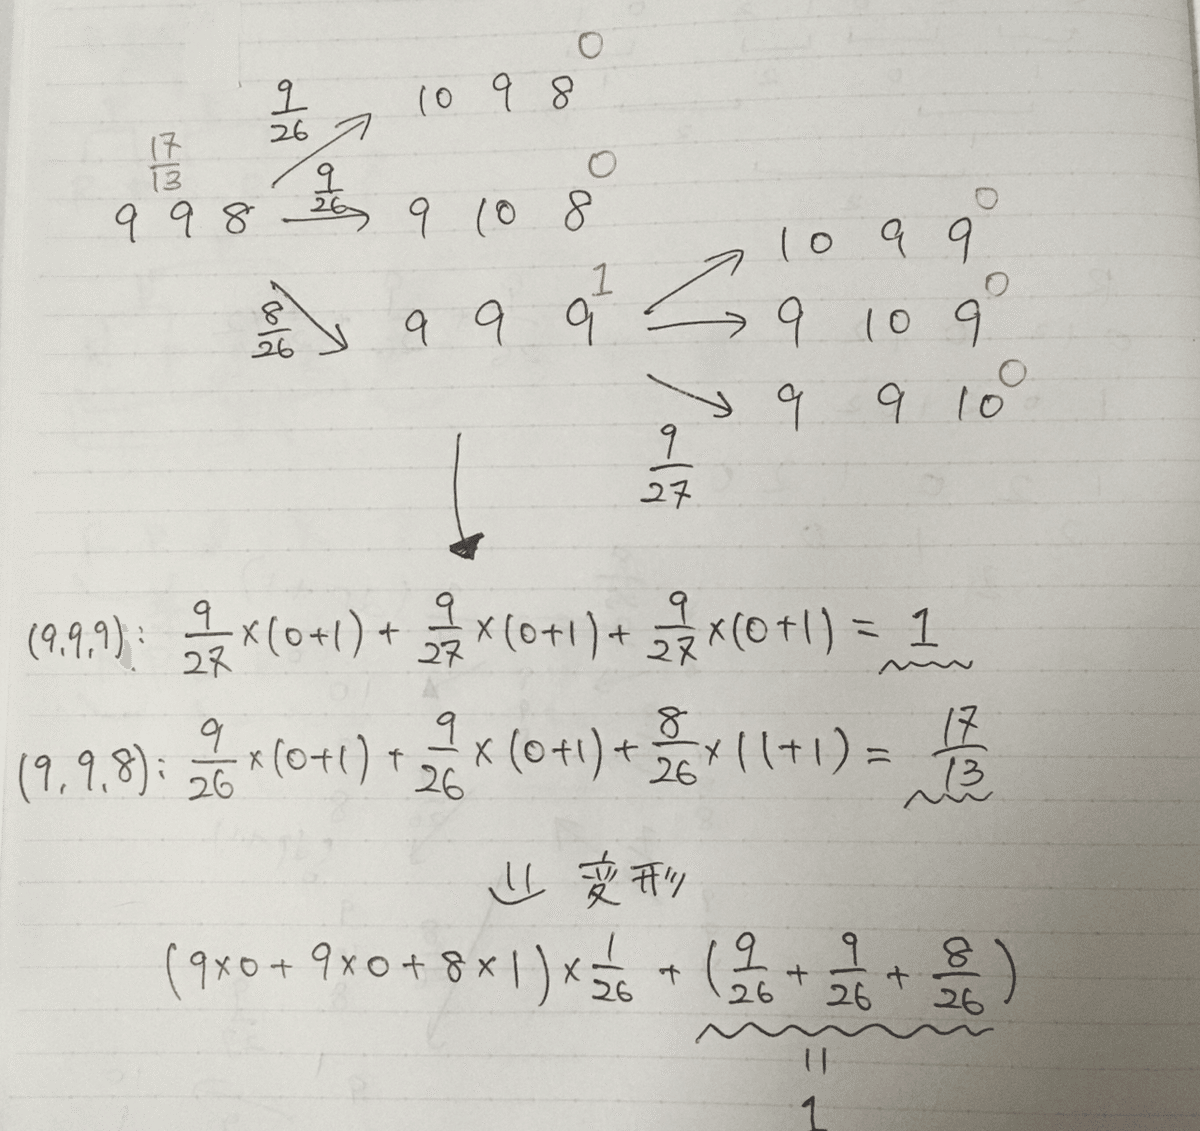 9/26 10 9 8 0
17/13
9 9 8 9/26 9 10 8 0
8/26 9 9 9 1
10 9 9 0
9 10 9 0
9 9 10 0
9/27
(9,9,9): 9/27×(0+1)+9/27×(0+1)+9/27×(0+1)=1
(9,9,8): 9/26×(0+1)+9/26×(0+1)+8/26×(1+1)=17/13
変形
(9×0+9×0+8×1)×1/26+(9/26+9/26+8/26)
=
1